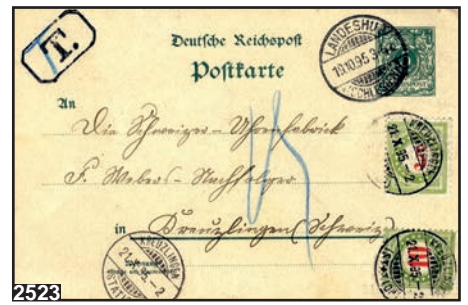 T.
Deutsche Reichspost
Postkarte
LANDESHUT
19.10.95
(SCHLESIEN)
An
Die Schweizer-Uhrenfabrick
F. Webers-Nachfolger
in Kreuzlingen (Schweiz)
15
KREUZLINGEN
21.X.95.-2
10
KREUZLINGEN
2523